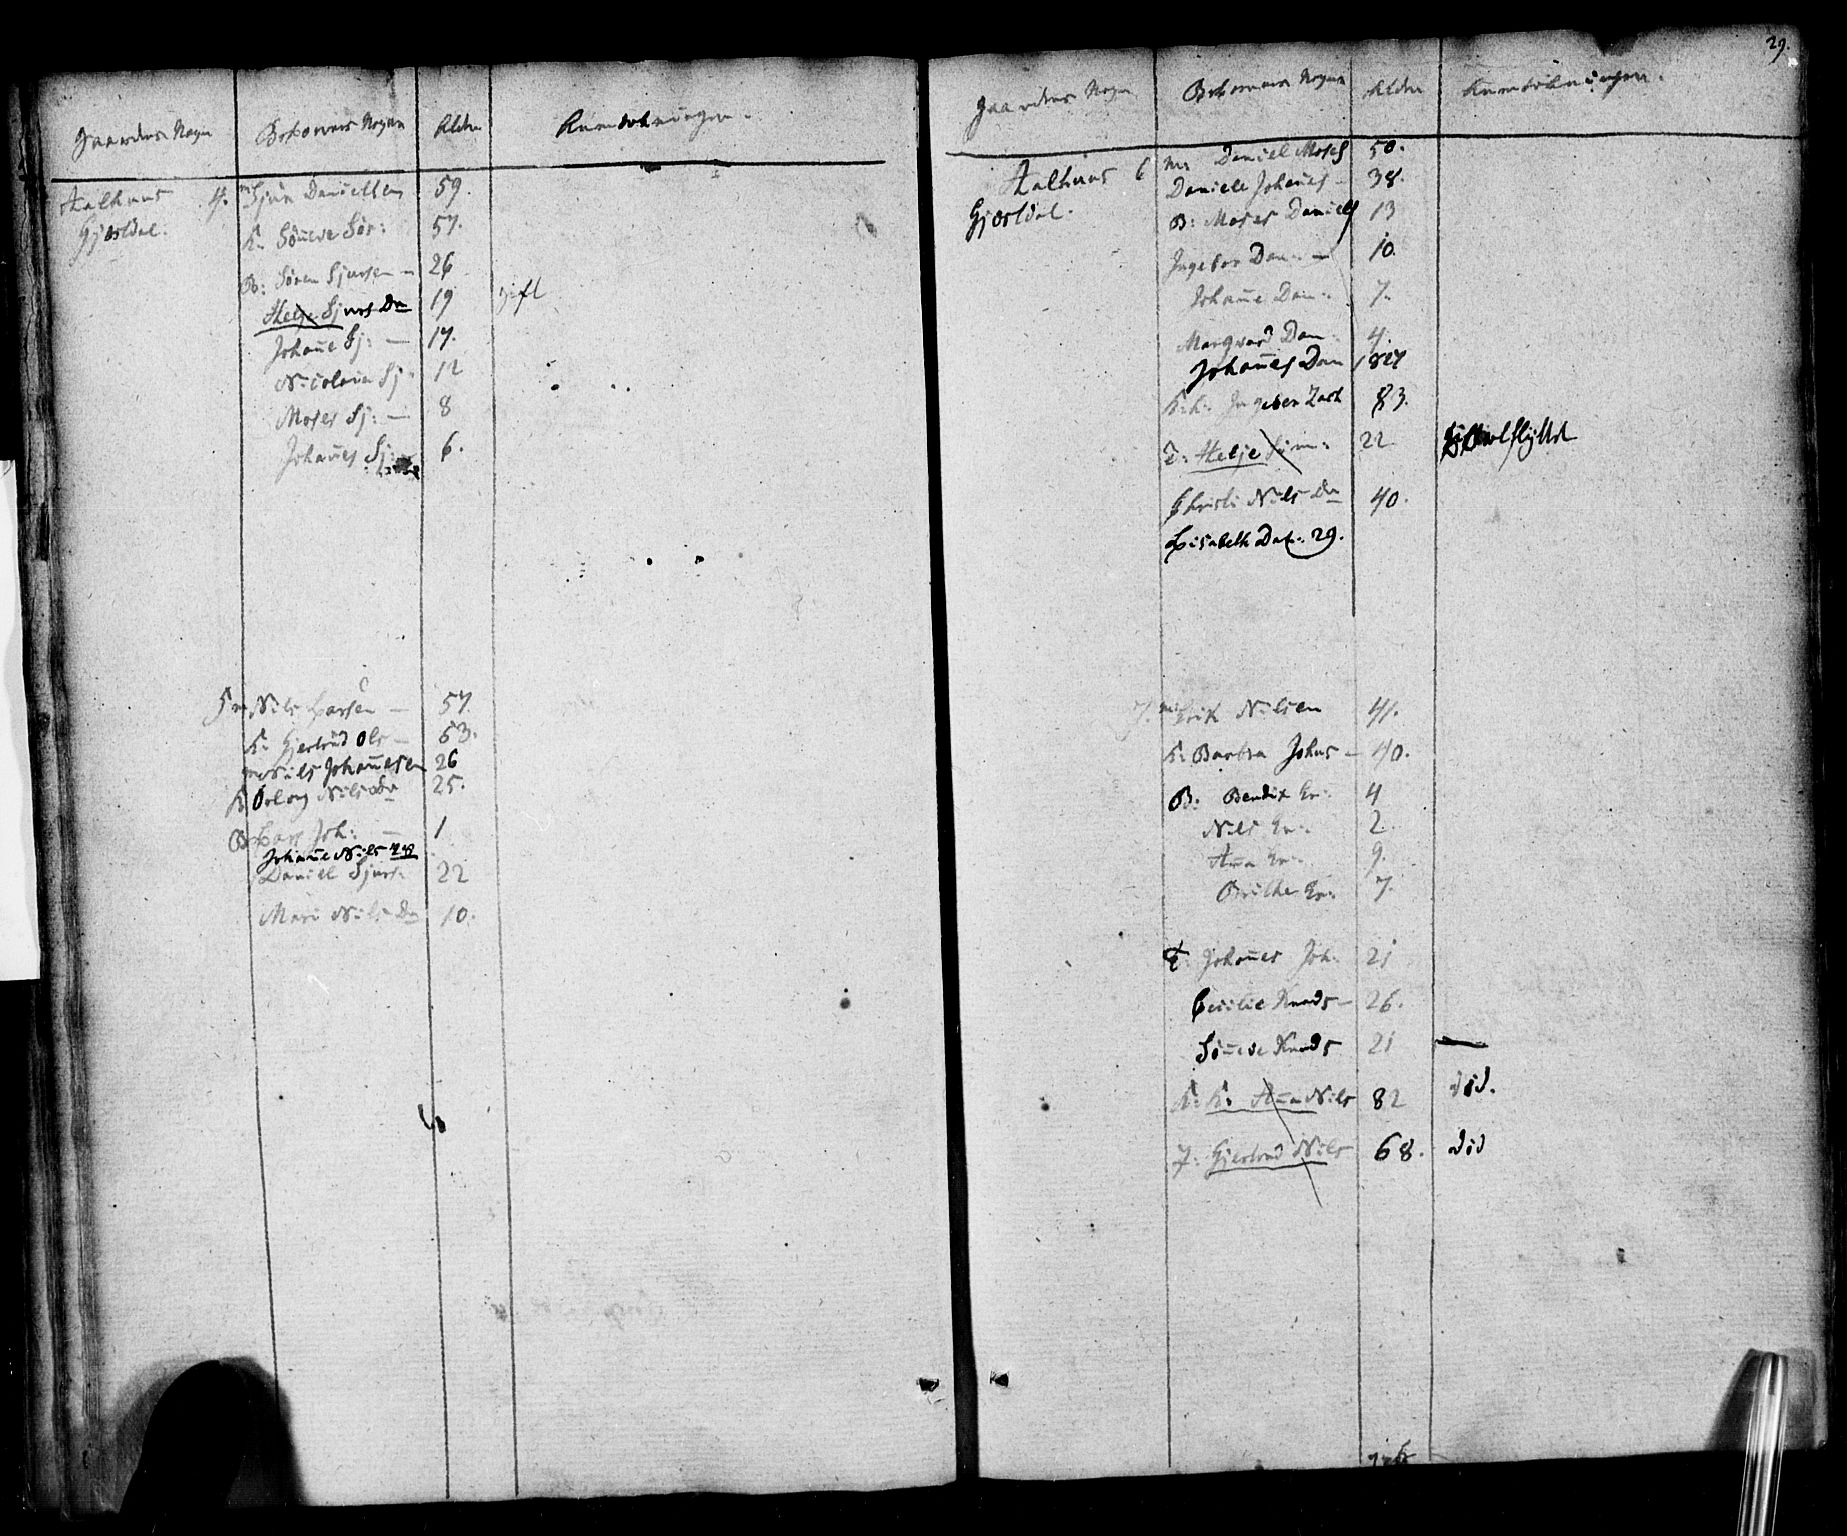 29.
Gaardens Nogn Beboernes Nogne Alder Anmerkninger.
Aalhuus 4. m Sjur Danielsen 59.
Gjosdal. K. Süneve Sør: 57.
B: Søren Sjursen — 26
Helje Sjurs Dr 19 gift
Johane Sj: — 17.
Nicolaus Sj: 12
Moses Sj: — 8
Johanes Sj: 6.
5 m Nils Larsen — 57
K. Gjertrud Ols — 53.
m Nils Johanesen 26
K Nils Dr 25.
B: Lars Joh: — 1
Johane Nils
Daniel Sjurs. 22
Mari Nils Dr 10.
Gaardens Nogn Beboernes Nogne Alder Anmerkninger.
Aalhuus 6 m: Daniel Moses 50.
Gjosdal. Daniele Johanes — 38.
B: Moses Daniels 13
Ingebor Dan: — 10.
Johane Dan: 7.
Margvard Dan: 4.
Johanes Dan 1827
K: K: Ingebor Zach 83.
T: Helje Sjur: 22
Christi Nils Dr 40.
Lisabeth Dat: 29.
7. m: Erik Nilsen 41.
K: Barbra Johns — 40.
B: Bendix Er: 4
Nils Er: 2.
Ana Er: 9.
Brithe Er: 7.
T: Johanes Joh. 21
Cecilie Knuds — 26.
Süneve Knuds 21 —
K: K: Ana Nils 82 död.
7: Gjertrud Nils 68. död